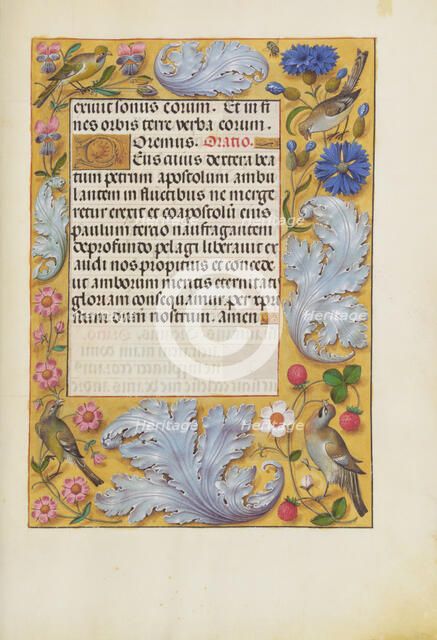 exivit sonus eorum. Et in fi
nes orbis terre verba eorum.
Oremus. Oratio.
Deus cuius dextera bea
tum petrum apostolum ambu
lantem in fluctibus ne merge
retur erexit et coapostolū eius
paulum tercio naufragantem
de profundo pelagi liberavit ex
audi nos propitius et concede
ut amborum meritis eternitati
gloriam consequamur. per xpm
dominum nostrum. amen
Heritage
Heritage
Heritage
Heritage
Heritage
Heritage